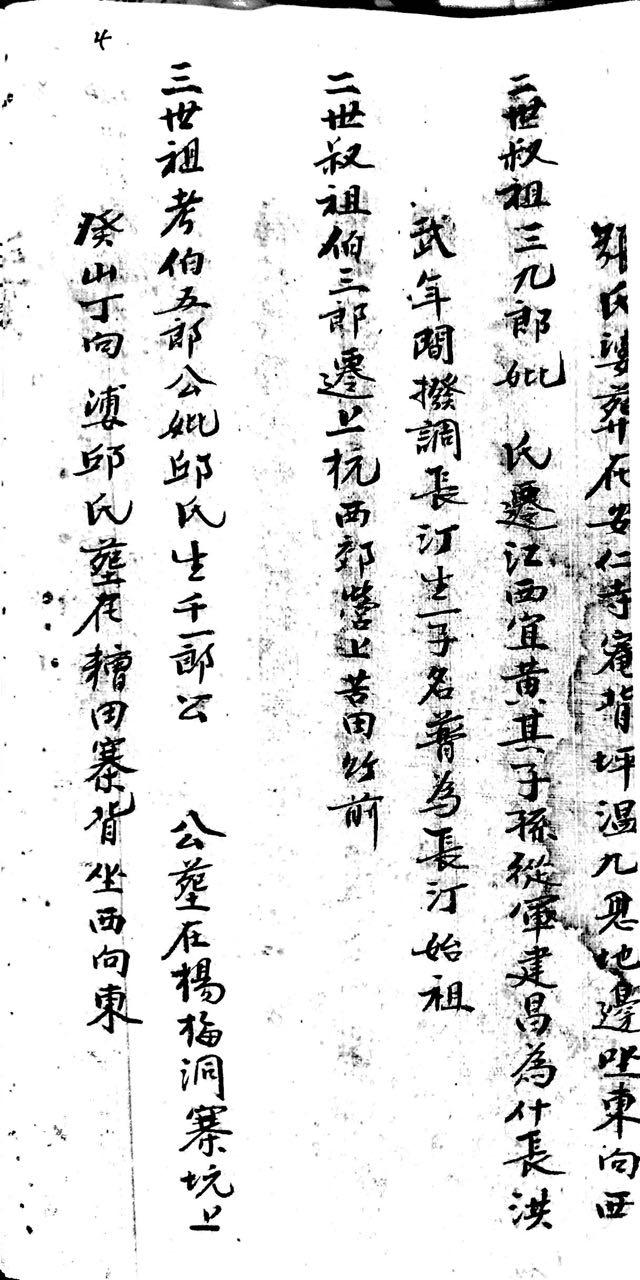 4
氏婆葬在安仁寺竜背坪温九恩地邊坐東向西
二世叔祖三九郎妣 氏遷江西宜黄其子孫從軍建昌為什長洪
武年間撥調長汀生一子名普為長汀始祖
二世叔祖伯三郎遷上杭西郊營上苦田竹前
三世祖考伯五郎公妣邱氏生千一郎公 公塟在楊梅洞寨坑上
癸山丁向 婆邱氏塟在糟田寨背坐西向東